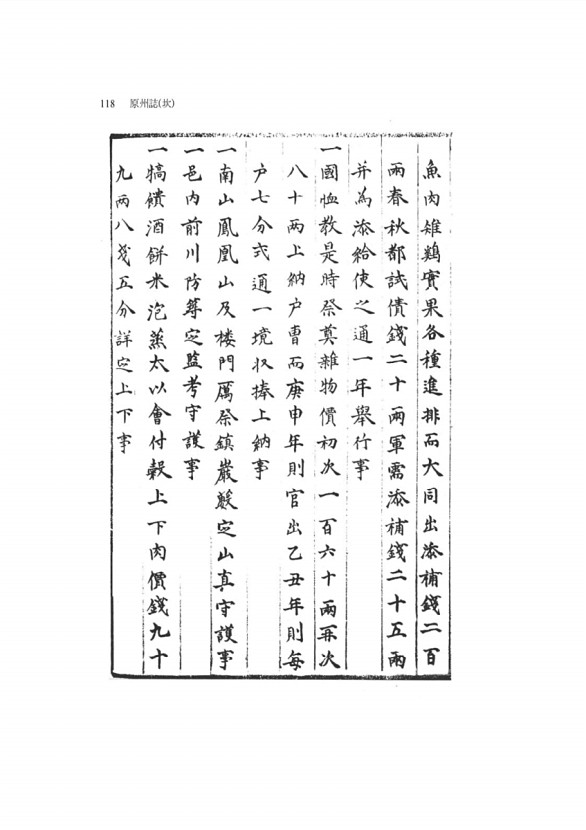 118 原州誌(坎)
魚肉雉鷄實果各種進排而大同出添補錢二百
兩春秋都試債錢二十兩軍需添補錢二十五兩
并為添給使之通一年舉行事
一國恤教是時祭奠雜物價初次一百六十兩再次
八十兩上納戶曹而庚申年則官出乙丑年則每
戶七分式通一境收捧上納事
一南山鳳凰山及楼門厲祭鎮嚴定山真守護事
一邑内前川防筭定監考守護事
一犒饋酒餅米泡蒸太以會付穀上下肉價錢九十
九兩八戔五分詳定上下事